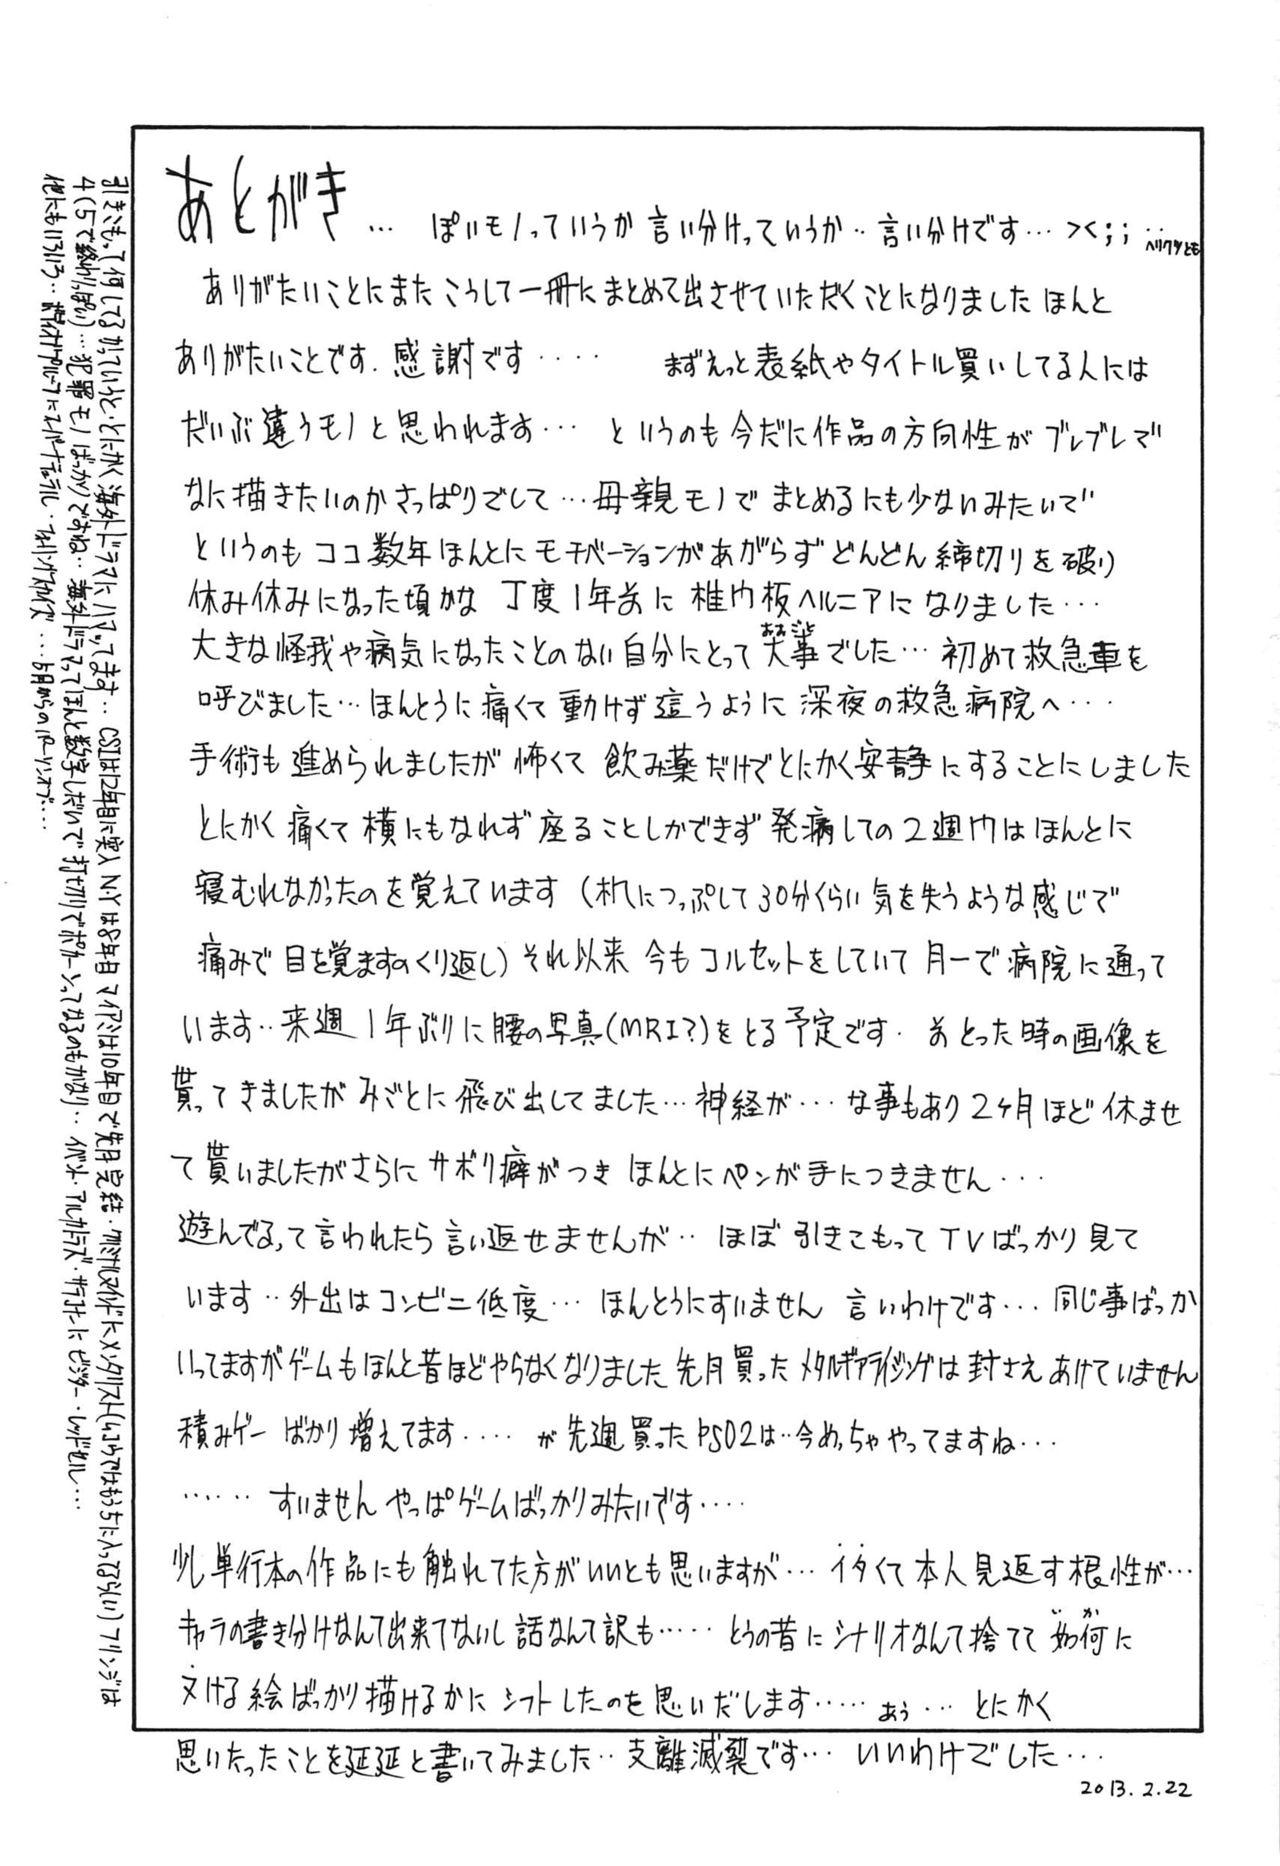 あとがき … ぽいモノっていうか 言い分けっていうか‥ 言い分けです… ><;; ‥
ヘリクツとも
ありがたいことにまた こうして一冊にまとめて出させていただくことになりました ほんと
ありがたいことです. 感謝です ‥‥ まずえっと表紙やタイトル買いしてる人には
だいぶ違うモノと思われます… というのも今だに作品の方向性が ブレブレで
なに描きたいのかさっぱりでして …母親モノで まとめるにも少ないみたいで
というのも ココ数年ほんとに モチベーションがあがらず どんどん締切りを破り
休み休みになった頃かな 丁度1年前に 椎間板ヘルニアに なりました…
大きな怪我や病気になったことのない自分にとって 大事でした… 初めて救急車を
おおごと
呼びました…ほんとうに痛くて動けず 這うように 深夜の救急病院へ…
手術も進められましたが 怖くて 飲み薬だけでとにかく安静にすることにしました
とにかく痛くて 横にもなれず 座ることしかできず 発病しての2週間はほんとに
寝むれなかったのを覚えています (机につっぷして30分くらい気を失うような感じで
痛みで目を覚ますのくり返し) それ以来 今もコルセットをしていて 月一で病院に通って
います‥ 来週1年ぶりに腰の写真(MRI?)をとる予定です. 前とった時の画像を
貰ってきましたが みごとに飛び出してました…神経が… な事もあり2ヶ月ほど休ませ
て貰いましたがさらに サボり癖がつき ほんとにペンが手につきません…
遊んでるって言われたら言い返せませんが‥ ほぼ引きこもってTVばっかり見て
います‥外出はコンビニ低度… ほんとうにすいません 言いわけです… 同じ事ばっか
いってますがゲームもほんと昔ほどやらなくなりました 先月買ったメタルギアライジングは封さえあけていません
積みゲー ばかり増えてます‥‥ が先週買ったPSO2は‥今めっちゃやってますね…
…… すいません やっぱゲームばっかりみたいです‥‥
少し単行本の作品にも触れてた方がいいとも思いますが… イタくて本人見返す根性が…
キャラの書き分けなんて出来てないし 話なんて訳も…‥ とうの昔にシナリオなんて捨てて 如何に
いか
ヌける絵ばっかり描けるかに シフトしたのを思いだします…‥ あぅ… とにかく
思いたったことを延延と書いてみました‥ 支離滅裂です… いいわけでした…
2013.2.22
引きこもって何してるかっていうと・とにかく海外ドラマにハマってます‥ CSIは12年目に突入 N.Yは8年目 マイアミは10年目で先月完結・クリミナルマインドにメンタリスト(ムコウではもう5に入ってるらしい) フリンジは
4(5で終わりっぽい)…犯罪モノばっかりですね‥ 海外ドラマってほんと数字しだいで打ち切りでポカーンってなるのもかなり‥ イベント・アルカトラズ・テラノバに ビジター・レッドセル…
他にもいろいろ‥ ヴァンパイアに スーパーナチュラル・フォーリングスカイズ… 5月からの パーソンオブ…